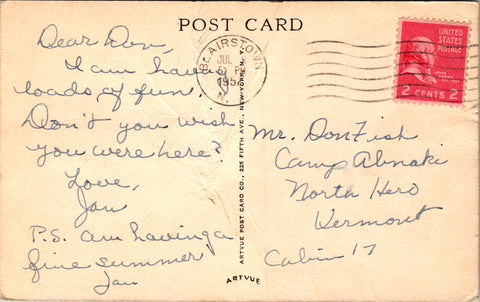 POST CARD
Dear Don,
I am have
loads of fun.
Don't you wish
you were here?
Love,
Jan
P.S. am having a
fine summer
Jan
BLAIRSTOWN
JUL
5 PM
N.J.
ARTVUE POST CARD CO., 225 FIFTH AVE., NEW YORK N. Y.
ARTVUE
UNITED
STATES
POSTAGE
JOHN ADAMS
2 CENTS 2
Mr. Don Fish
Camp Abnaki
North Hero
Vermont
Cabin 17